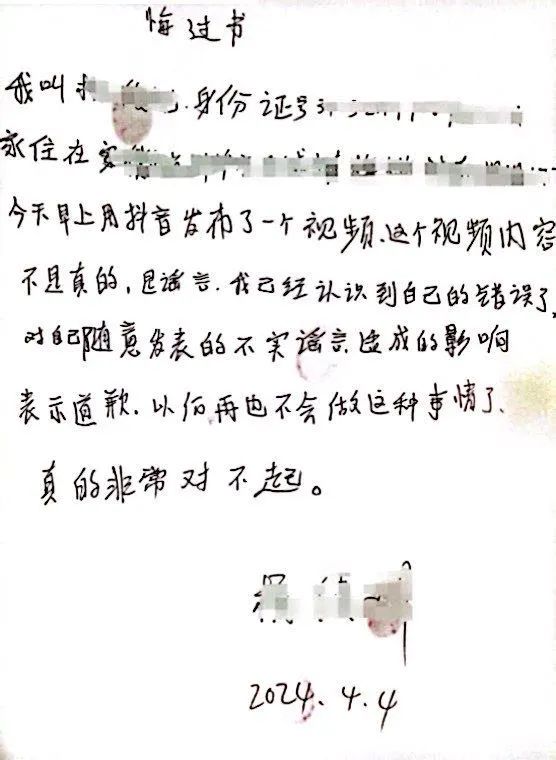 悔过书
我叫 身份证号
家住在
今天早上用抖音发布了一个视频、这个视频内容
不是真的，是谣言.我已经认识到自己的错误了,
对自己随意发表的不实谣言造成的影响
表示道歉.以后再也不会做这种事情了.
真的非常对不起。
2024.4.4